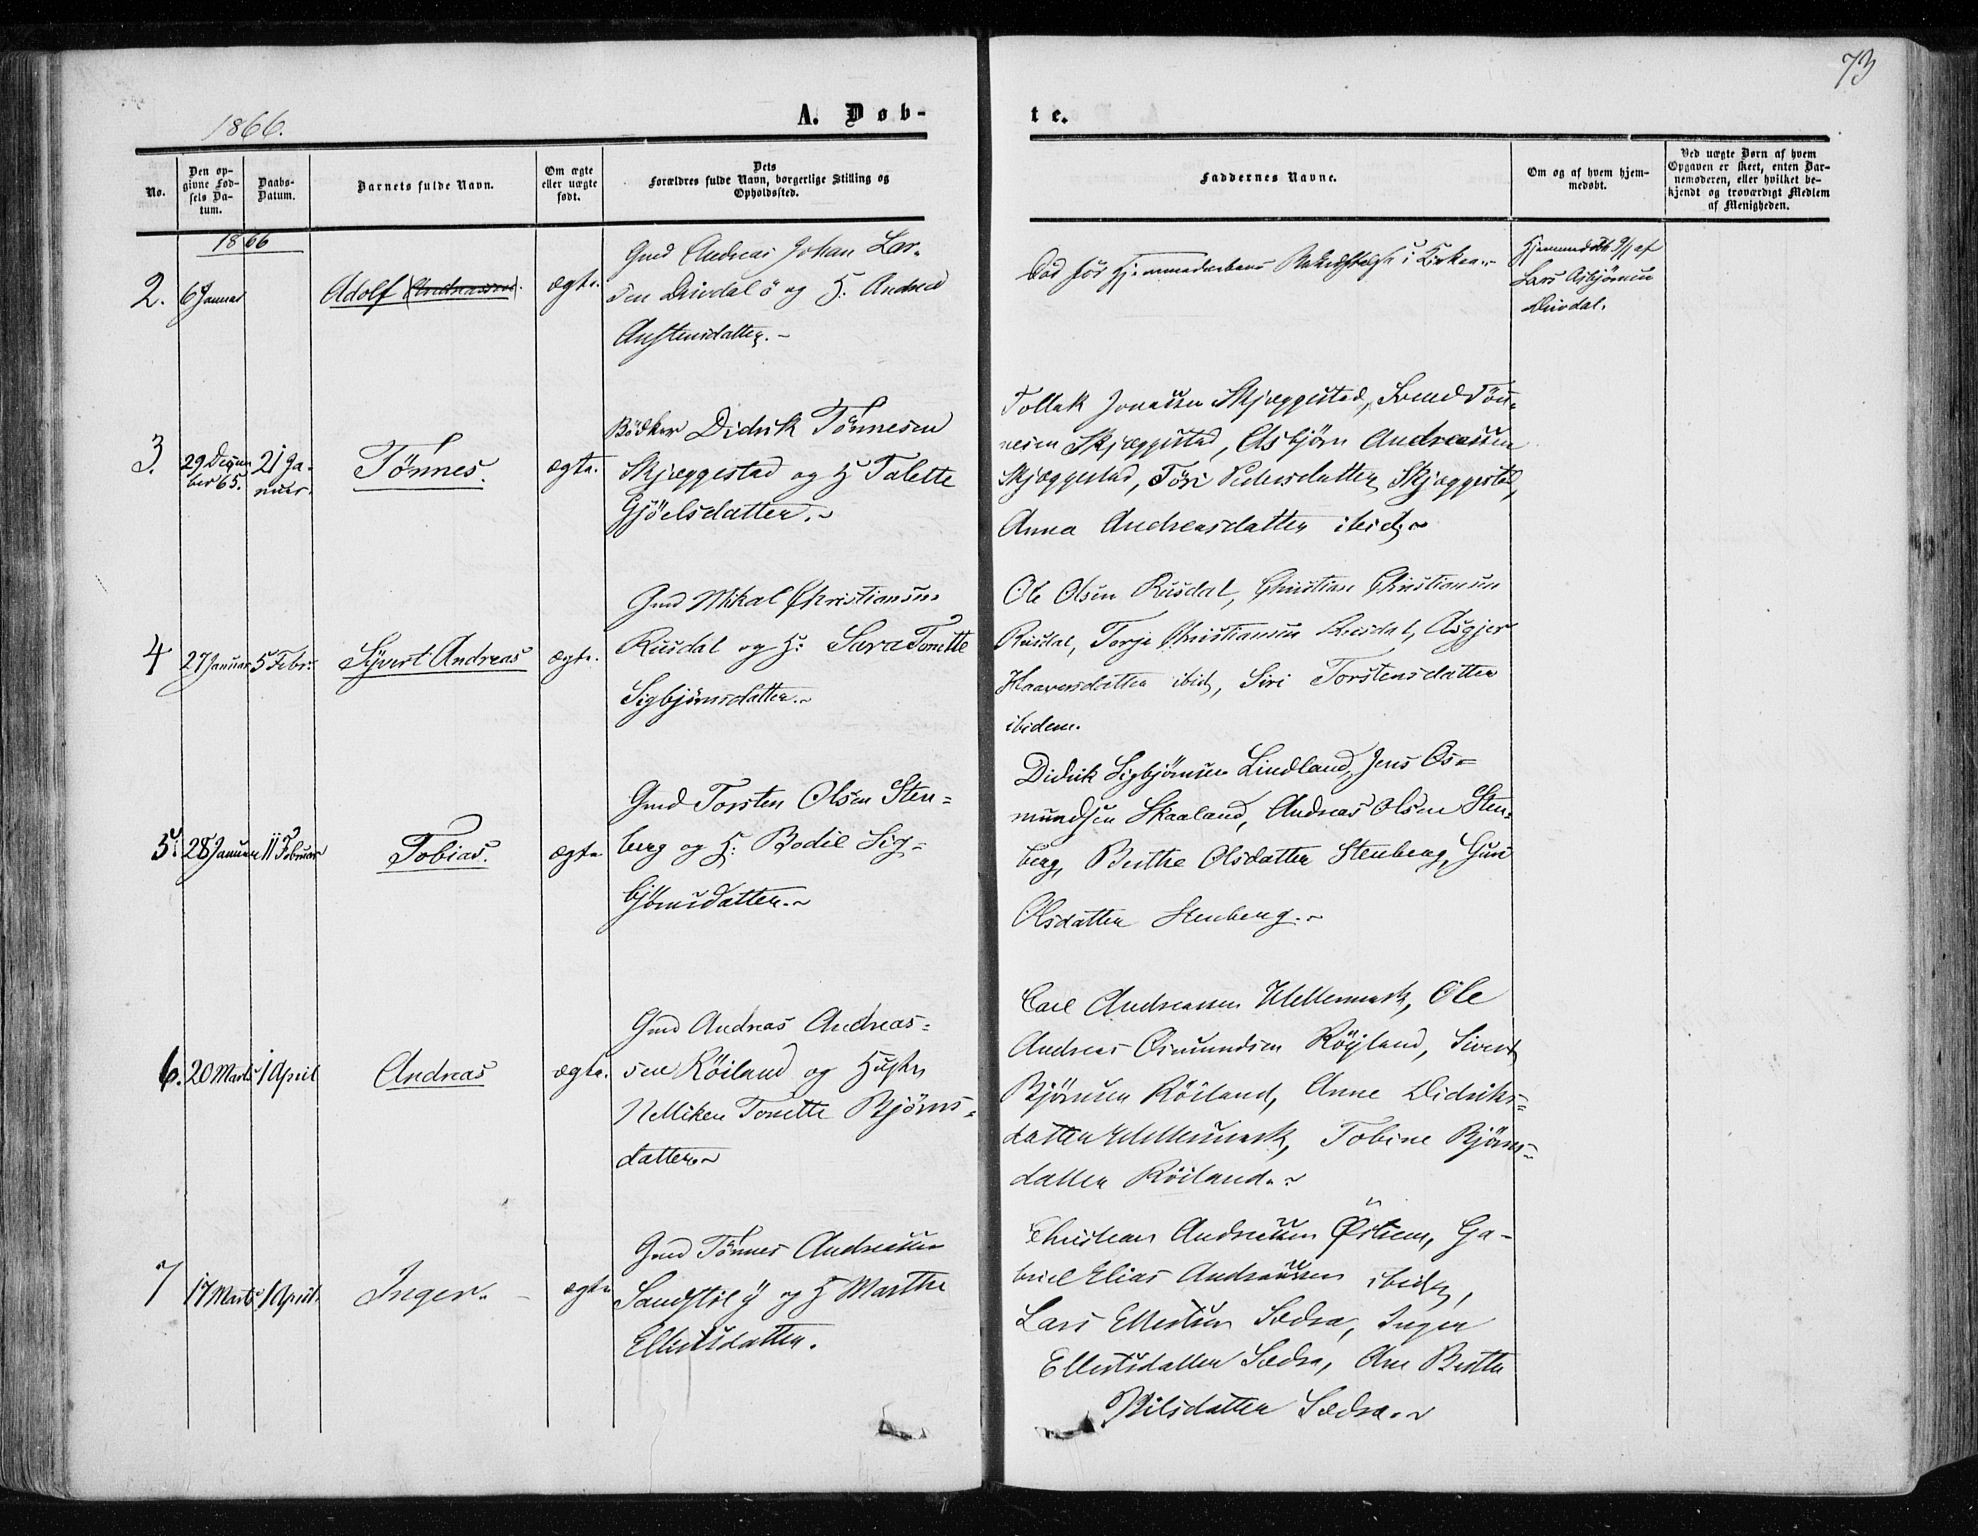 73
1866.
A. Døb-
te.
No.
Den op-
givne Fød-
sels Da-
tum.
Daabs-
Datum.
Barnets fulde Navn.
Om ægte
eller uægte
født.
Dets
Forældres fulde Navn, borgerlige Stilling og
Opholdssted.
Faddernes Navne.
Om og af hvem hjem-
medøbt.
Ved uægte Børn af hvem
Opgaven er skeet, enten Bar-
nemoderen, eller hvilket be-
kjendt og troværdigt Medlem
af Menigheden.
1866
2.
6 Januar
Adolf (Andreassen).
ægte.
Gmd Andreas Johan Lar-
sen Drivdal ö og H. Andrea
Austensdatter.-
Död før Hjemmedaabens i Kirken.-
Hjemmedöbt 9/1 af
Lars Asbjørnsen
Drivdal.
3.
29 Decem
ber 65.
21 Ja-
nuar.
Tønnes.
ægte.
Bödker Didrik Tønnesen
Skjæggestad og H Talette
Gjöelsdatter.~
Tollak Jonassen Skjæggestad, Svend Tön-
nesen Skjæggestad, Asbjørn Andreassen
Skjæggestad, Töri Pedersdatter Skjæggestad,
Anna Andreasdatter ibid.~
4
27 Januar
5 Febr:
Syvert Andreas
ægte.
Gmd Mikal Christiansen
Rusdal og H: Sara Tonette
Sigbjörnsdatter.~
Ole Olsen Rusdal, Christian Christiansen
Rusdal, Torje Christiansen Rusdal, Asgjer
Haaversdatter ibid, Siri Torstensdatter
ibidem.
5.
28 Januar
11 Februar
Tobias.
ægte
Gmd Torsten Olsen Sten-
berg og H: Bodil Sig-
bjørnsdatter.~
Didrik Sigbjörnsen Lindland, Jens Os-
mundsen Skaaland, Andreas Olsen Sten-
berg, Berthe Olsdatter Stenberg, Guri
Olsdatter Stenberg.~
6.
20 Marts
1 April
Andreas
ægte.
Gmd Andreas Andreas-
sen Röiland og Hustru
Nelliken Tonette Bjørns-
datter.~
Carl Andreassen Mellemmark, Ole
Andreas Osmundsen Röyland, Sivert
Bjørnsen Röiland, Anne Didriks-
datter Mellemmark, Tobine Bjørns-
datter Röiland.~
7
17 Marts
1 April.
Inger.
ægte
Gmd Tønnes Andreassen
Sandstöl y og H Marthe
Ellertsdatter.
Christian Andreassen Östrem, Ga-
briel Elias Andreassen ibid,
Lars Ellertsen Sædra, Inger
Ellertsdatter Sædra, Ane Berthe
Nilsdatter Sædra.~